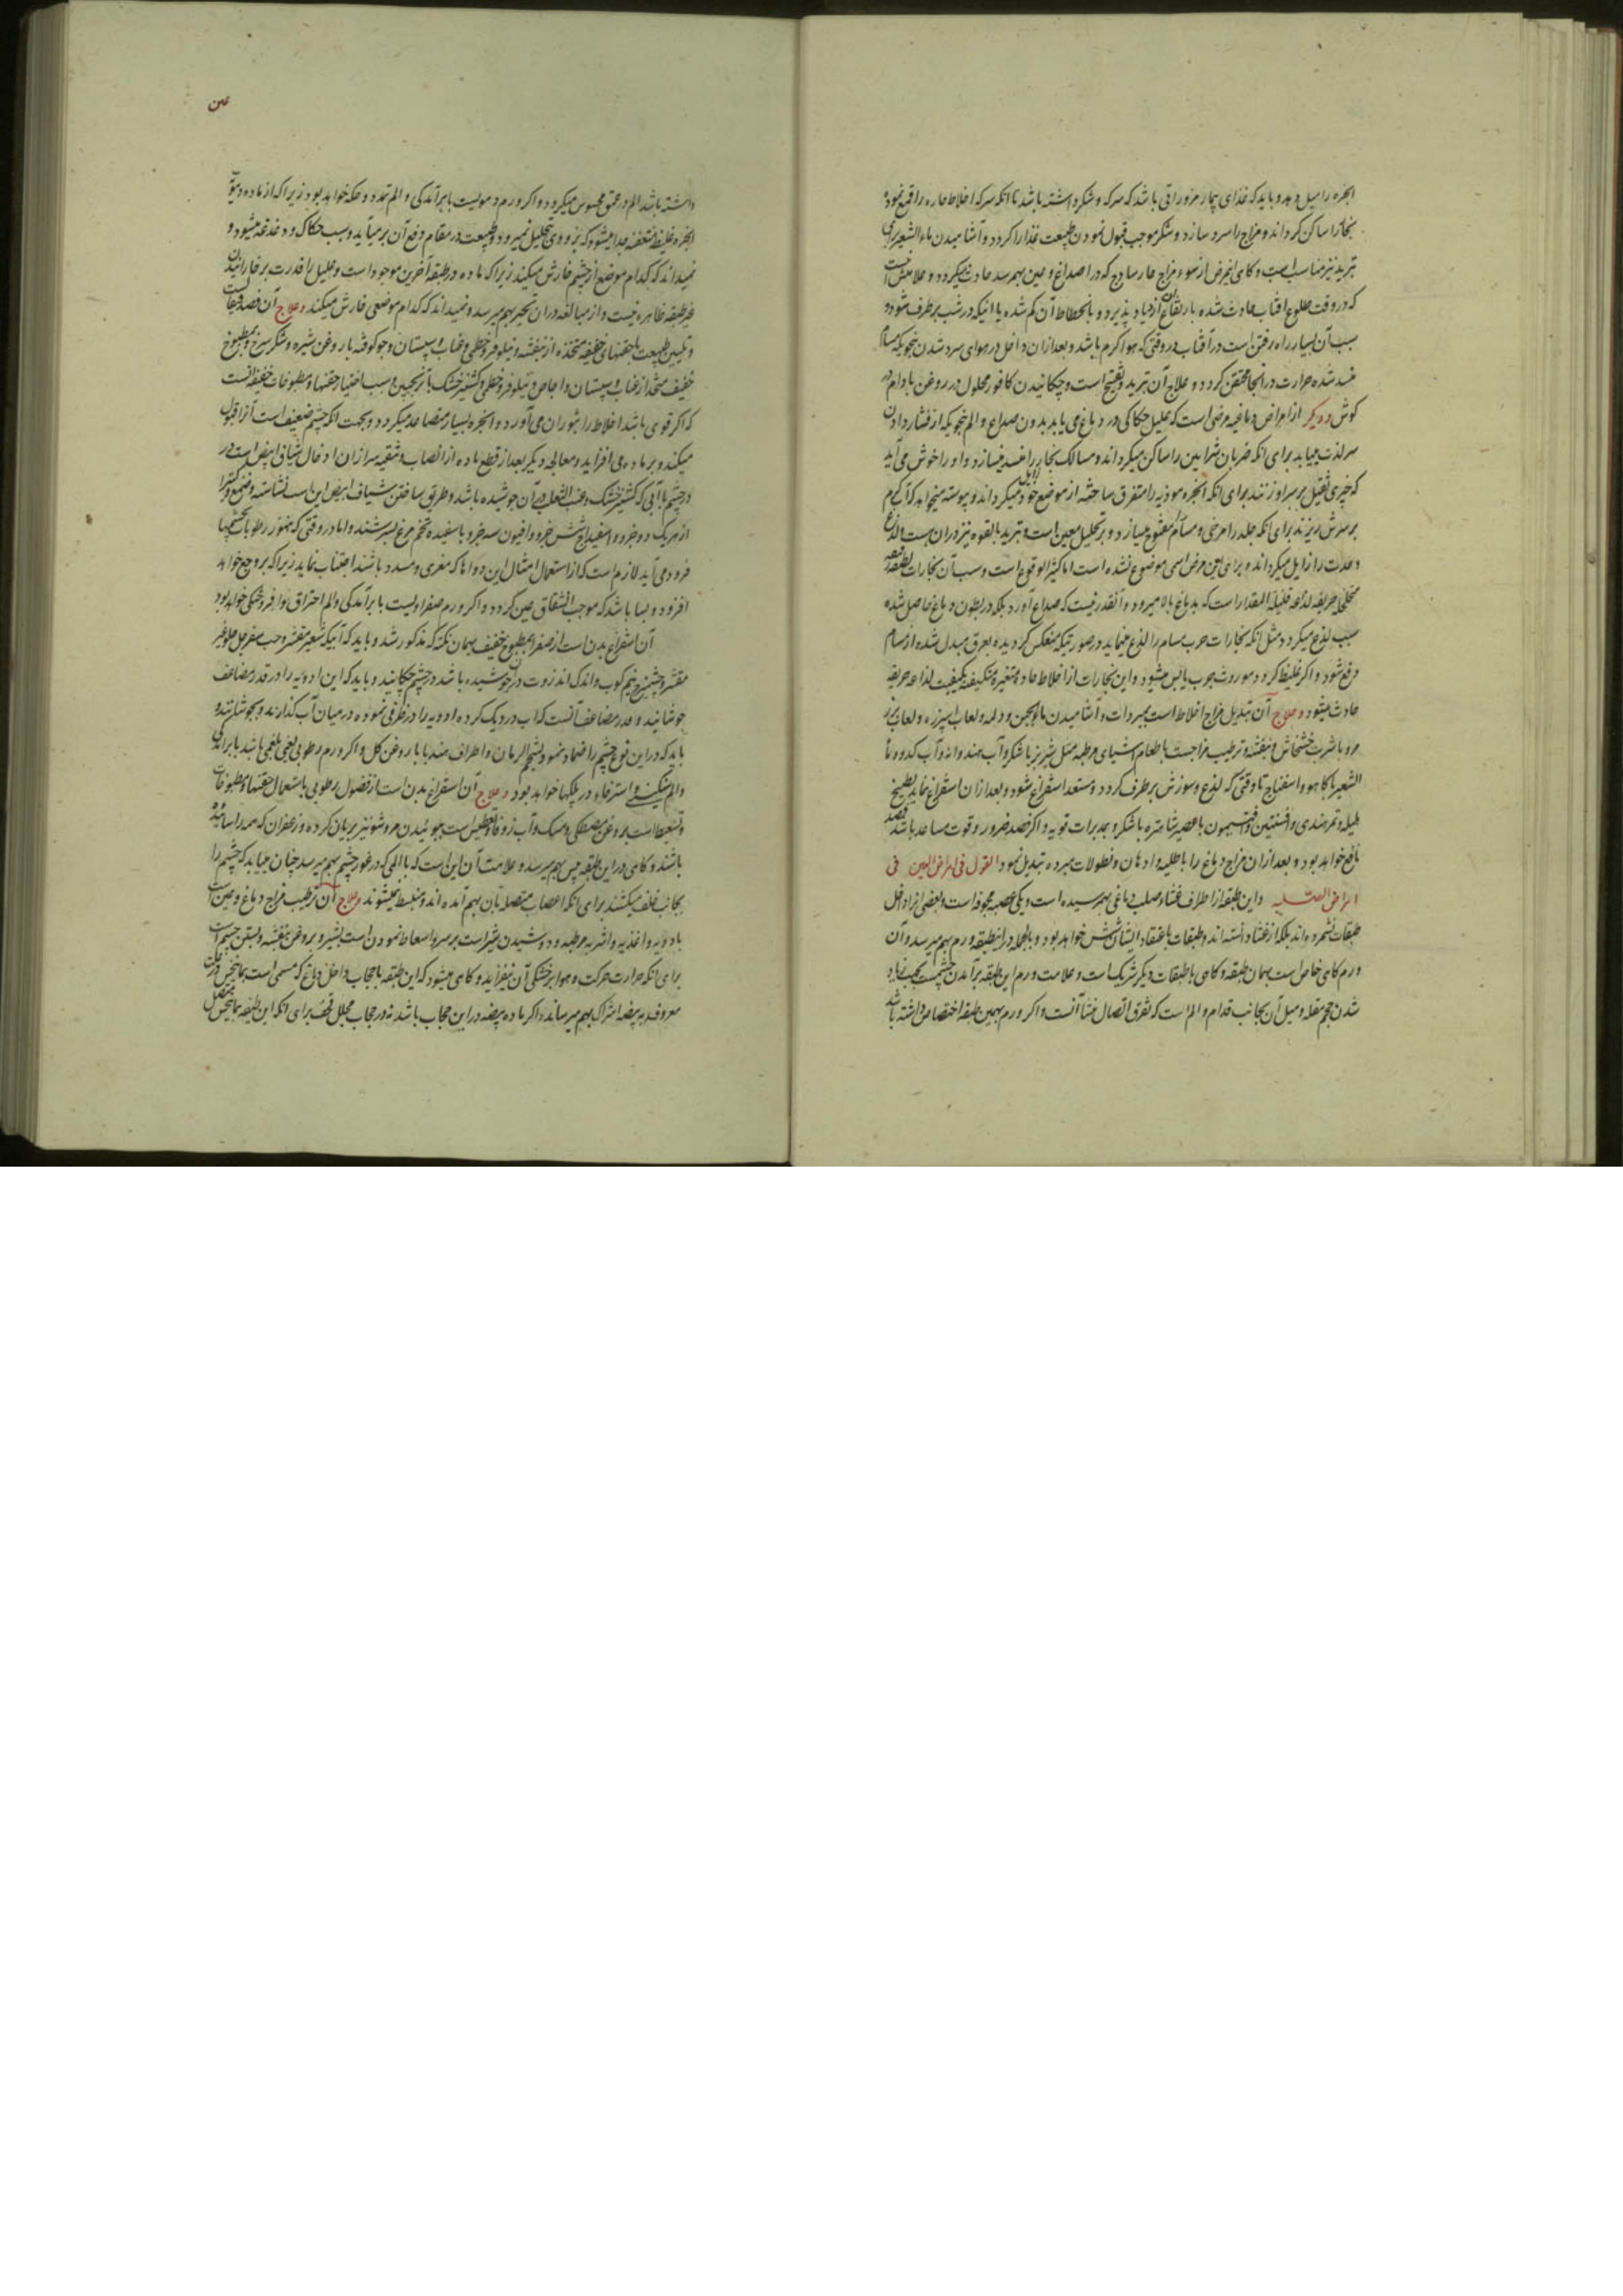 ابخره را میل دهد و باید که غذای بیمار مزوراتی باشد که سرکه و شکر داشته باشد تا انکه سرکه اخلاط حاره را قمع نموده
بخار را ساکن کرداند و مزاج را سرد سازد و شکر موجب قبول نمودن طبیعت غذا را کردد و آشامیدن ماء الشعیر برای
تبرید نیز مناسب است و کاهی اینمرض از سوء مزاج حار ساذج که در اصداغ و عین بهم رسد حادث میکردد و علامتش آنست
که در وقت طلوع افتاب حادث شده بارتفاع آن ازدیاد پذیرد و بانحطاط آن کم شده یا اینکه در شب برطرف شود و
سبب آن بسیار راه رفتن است در آفتاب در وقتی که هوا کرم باشد و بعد ازان داخل در هوای سرد شدن بنحویکه مسام
منسد شده حرارت در انجا محتقن کردد و علاج آن تبرید و تفتیح است و چکانیدن کافور محلول در روغن بادام در
کوش و دیکر از امراض دماغیه مرضی است که علیل حکاکی در دماغ می یابد بدون صداع و الم بنحویکه از فشار دادن
سر لذت مییابد برای انکه ضربان شرایین را ساکن میکرداند و مسالک بخار را منسد میسازد و او را خوش می آید
که چیزی ثقیل بر سر او زنند برای انکه ابخره موذیه را متفرق ساخته از موضع خود زایل میکرداند و پیوسته میخواهد که آب کرم
بر سرش ریزند برای انکه جلد را مرخی و مسام را مفتوح میسازد و بر تحلیل معین است و تبرید بالقوه نیز دران هست و لذع
و حدت را زایل میکرداند و برای این مرض اسمی موضوع نشده است اما کثیر الوقوع است و سبب آن بخارات لطیفه
متخلخله حریفه لذاعه قلیلة المقدار است که بدماغ بالا میرود و آنقدر نیست که صداع آورد بلکه در بطون دماغ حاصل شده
سبب لذع میکردد مثل انکه بخارات جرب مسام را لذع مینماید در صورتیکه منعکس کردیده بعرق مبدل شده از مسام
دفع شود و اکر غلیظ کردد موروث جرب یابس میشود و این بخارات از اخلاط حاده متغیره متکیفه بکیفیت لذاعه حریفه
حادث میشود و علاج آن تبدیل مزاج اخلاط است بمبردات و آشامیدن ماء الجبن و دلمه و لعاب اسپرزه و لعاب بزر
مرو با شربت خشخاش و بنفشه و ترطیب مزاجست باطعام اشیای مرطبه مثل شیر بز با شکر و آب هندوانه و آب کدو و ماء
الشعیر با کاهو و اسفناج تا وقتی که لذع و سوزش برطرف کردد و مستعد استفراغ شود و بعد ازان استفراغ نماید بطبیخ
هلیله و تمرهندی و افسنتین و افتیمون با عصیر شاهتره با شکر و بمدرات قویه و اکر فصد ضرور و قوت مساعد باشد فصد
نافع خواهد بود و بعد ازان مزاج دماغ را باطلیه و ادهان و نطولات مبرده تبدیل نمود القول فی امراض العین فی
امراض الصلبیه و این طبقه از اطراف غشاء صلب دماغی بهم رسیده است و یکی عصبه مجوفه است و بعضی انرا داخل
طبقات نشمرده اند بلکه از غشا دانسته اند و طبقات باعتقاد ایشان شش خواهد بود و بالجمله در اینطبقه ورم بهم میرسد و آن
ورم کاهی خاص است بهمان طبقه و کاهی با طبقات دیکر شریک است و علامت ورم این طبقه برآمدن چشمست بجهت زیاد
شدن حجم مقله و میل آن بجانب قدام و الم است که تفرق اتصال منشأ آنست و اکر ورم بهمین طبقه اختصاص داشته باشد
عین
داشته باشد الم در عمق محسوس میکردد و اکر ورم دمویست با برآمدکی و الم تمدد و حکه خواهد بود زیرا که از ماده دمویه
ابخره غلیظه متعفنه جدا میشود که بزودی تحلیل نمیرود و طبیعت در مقام دفع آن برمیآید و سبب حکاک و دغدغه میشود و
نمیداند که کدام موضع از چشم خارش میکند زیرا که ماده در طبقه آخرین موجود است و علیل را قدرت بر خاراندن
غیر طبقه ظاهره نیست و از مبالغه دران تحیر بهم میرسد و نمیداند که کدام موضعی خارش میکند و علاج آن فصد قیفال است
و تلیین طبیعت بحقنهای خفیفه متخذه از بنفشه و نیلوفر و خطمی و عناب و سپستان و جو کوفته با روغن شیره و شکر سرخ و بمطبوخ
خفیف متخذ از عناب و سپستان و اجاص و نیلوفر و خطمی و کشنیز خشک با ترنجبین و سبب اختیار حقنها و مطبوخات خفیفه آنست
که اکر قوی باشد اخلاط را بثوران می آورد و ابخره بسیار متصاعد میکردد و بجهت انکه چشم ضعیف است آنرا قبول
میکند و بر ماده می افزاید و معالجه دیکر بعد از قطع ماده از انصباب و تنقیه سر ازان ادخال شیاف ابیض است در
در چشم با آبی که کشنیز خشک و عنب الثعلب در آن جوشیده باشد و طریق ساختن شیاف ابیض این است نشاسته و صمغ و کتیرا
از هر یک دو جزو و اسفیداج شش جزو و افیون سه جزو با سفیده تخم مرغ بسرشند و اما در وقتی که هنوز رطوبات بچشمها
فرود می آید لازم است که از استعمال امثال این دواها که مغری و مسدد باشند اجتناب نماید زیرا که بر وجع خواهد
افزود و بسا باشد که موجب انشقاق عین کردد و اکر ورم صفراویست با برآمدکی و الم احتراق و افروختکی خواهد بود
آن استفراغ بدن است از صفرا بمطبوخ خفیف بهمان نکته که مذکور شد و باید که آبیکه شعیر مقشر و حب سفرجل حلو غیر
مقشر و چشیزج نیم کوب و اندک انذروت در آن جوشیده باشد در چشم چکانید و باید که این ادویه را در قدر مضاعف
جوشانید و قدر مضاعف آنست که اب در دیک کرده ادویه را در ظرفی نموده در میان آب کذارند و بجوشانند و
باید که در این نوع چشم را ضماد نمود بشحم الرمان و اطراف هندبا با روغن کل و اکر ورم رطوبی یعنی بلغمی باشد با برآمدکی
و الم سنکینی و استرخاء در پلکها خواهد بود و علاج آن استفراغ بدن است از فضول رطوبی باستعمال حقنها و مطبوخات
و تسعیط است بروغن مصطکی و مسک و آب زوفا و تعطیس است ببوئیدن مر و شونیز بریان کرده و زعفران که همه را سائیده
باشند و کاهی در این طبقه یبس بهم میرسد و علامت آن این است که با المی که در غور چشم بهم میرسد چنان مییابد که چشم را
بجانب خلف میکشند برای انکه اعصاب متصله بآن بهم آمده اند و منبسط نمیشوند و علاج آن ترطیب مزاج دماغ و عین است
بادویه و اغذیه و اشربه مرطبه و دوشیدن شیر است بر سر و اسعاط نمودن است بشیر و بروغن بنفشه و بستن چشم است
برای انکه حرارت حرکت و هوا بر خشکی آن نیفزاید و کاهی میشود که این طبقه با حجاب داخل دماغ که مسمی است
معروف به بیضه اشتراک بهم میرساند و اکر ماده بیضه در این حجاب باشد نه در حجاب مجلل قحف برای انکه این طبقه